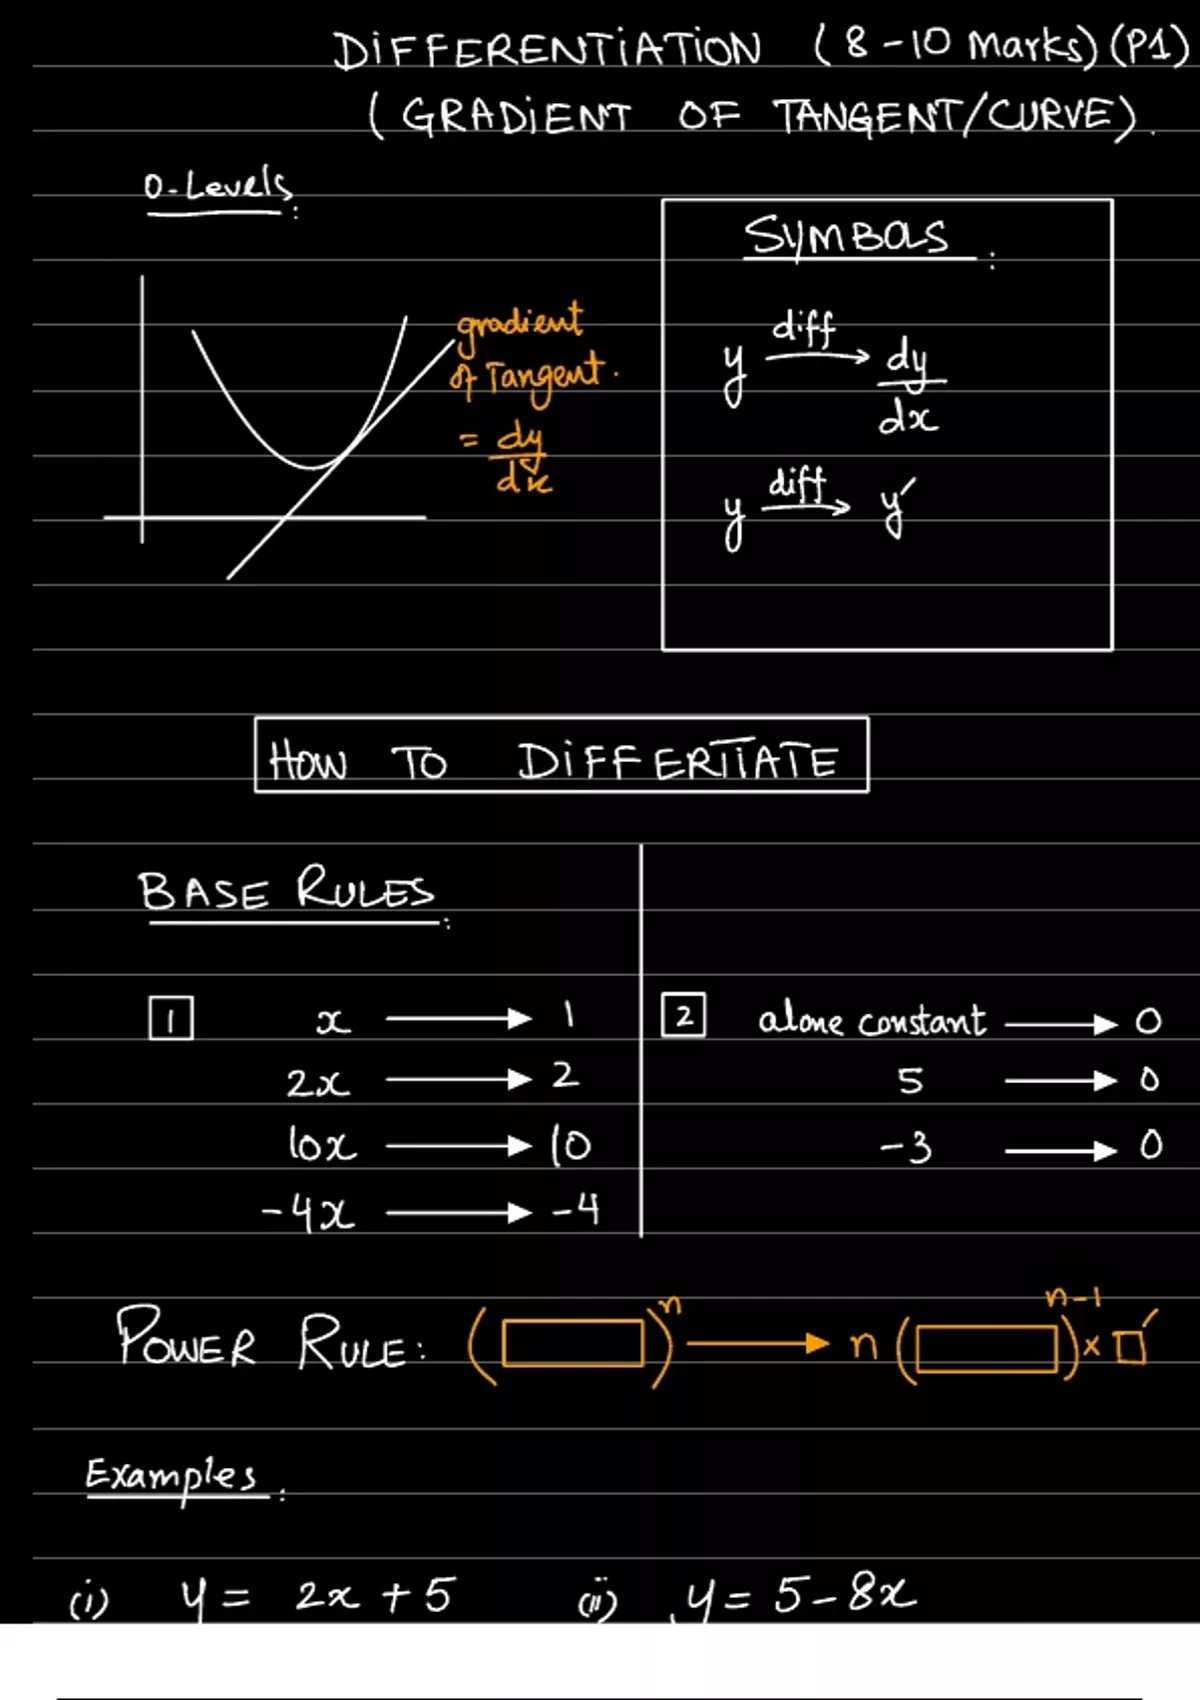 DIFFERENTIATION (8-10 Marks) (P1)
(GRADIENT OF TANGENT/CURVE).
O-Levels:
gradient
of Tangent.
= dy/dx
SYMBOLS:
y diff→ dy/dx
y diff→ y′
HOW TO DIFFERTIATE
BASE RULES:
1 x → 1
2x → 2
10x → 10
-4x → -4
2 alone constant → 0
5 → 0
-3 → 0
POWER RULE: (▭)ⁿ → n(▭)ⁿ⁻¹ × □′
Examples:
(i) y = 2x + 5 (ii) y = 5 - 8x